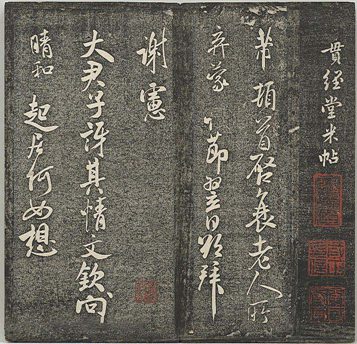 貫經堂米帖
芾頓首啓衰老人所
弃蒙
節下日以拜
謝憲
大君子許其情文欽向
晴和
起居何如想